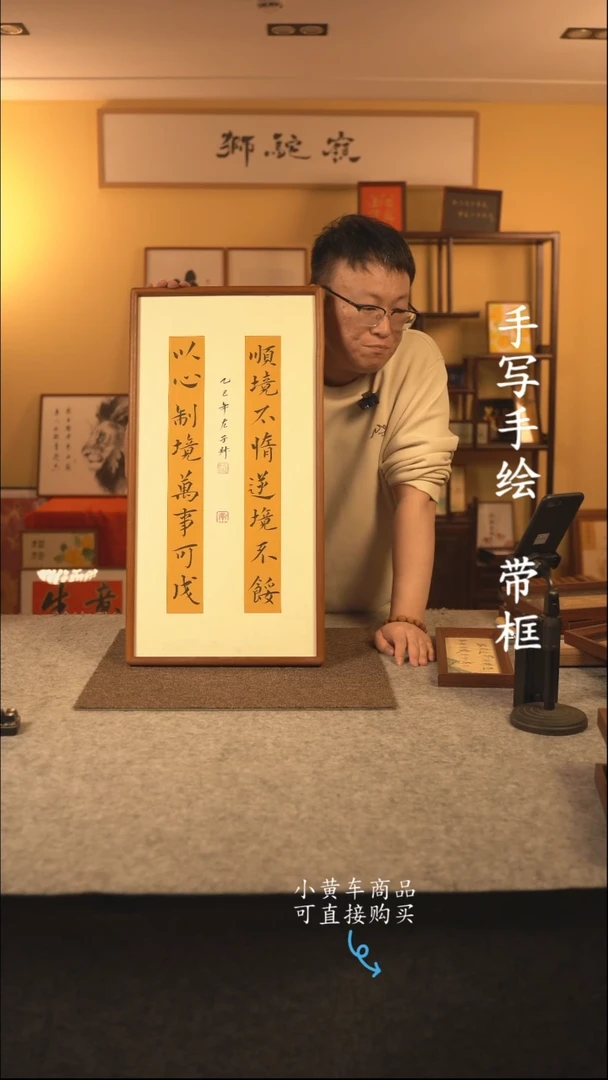 獅駝
順境不惰逆境不餒
乙巳年
以心制境萬事可成
手写手绘 带框
生意
小黄车商品
可直接购买